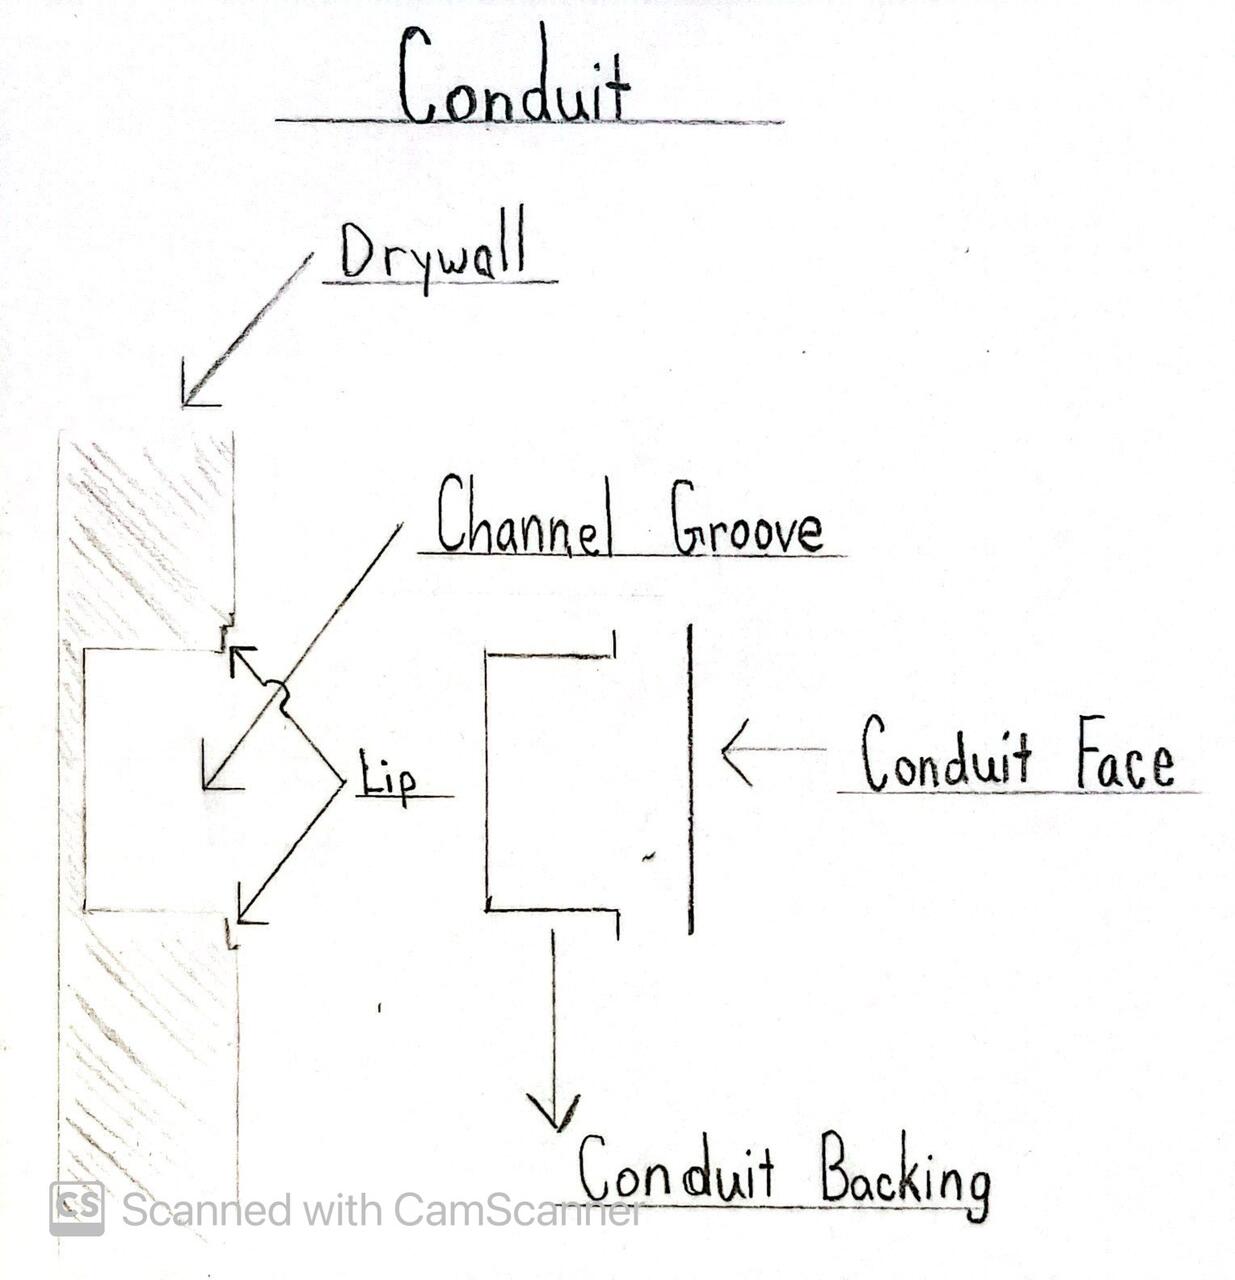 Conduit
Drywall
Channel Groove
Lip
Conduit Face
Conduit Backing
CS Scanned with CamScanner